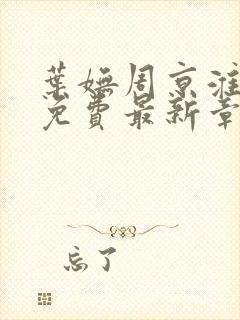 葉嫵周京淮
免費最新章
忘了